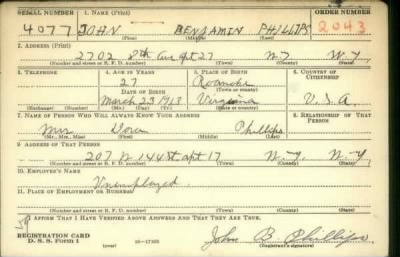 SERIAL NUMBER 1. NAME (Print) ORDER NUMBER
4077 JOHN BENJAMIN PHILLIPS 2043
(First) (Middle) (Last)
2. ADDRESS (Print)
2702 8th Ave Apt 27 N.Y. N.Y.
(Number and street or R. F. D. number) (Town) (County) (State)
3. TELEPHONE 4. AGE IN YEARS 5. PLACE OF BIRTH 6. COUNTRY OF CITIZENSHIP
27 Roanoke
DATE OF BIRTH (Town or county)
March 23 1913 Virginia U.S.A.
(Exchange) (Number) (Mo.) (Day) (Yr.) (State or country)
7. NAME OF PERSON WHO WILL ALWAYS KNOW YOUR ADDRESS 8. RELATIONSHIP OF THAT PERSON
Mrs Dora Phillips
(Mr., Mrs., Miss) (First) (Middle) (Last)
9. ADDRESS OF THAT PERSON
207 W 144 St. apt 17 N.Y. N.Y.
(Number and street or R. F. D. number) (Town) (County) (State)
10. EMPLOYER'S NAME
Unemployed
11. PLACE OF EMPLOYMENT OR BUSINESS
(Number and street or R. F. D. number) (Town) (County) (State)
I AFFIRM THAT I HAVE VERIFIED ABOVE ANSWERS AND THAT THEY ARE TRUE.
REGISTRATION CARD
D. S. S. Form 1 (over) 16—17105 John B. Phillips
(Registrant's signature)